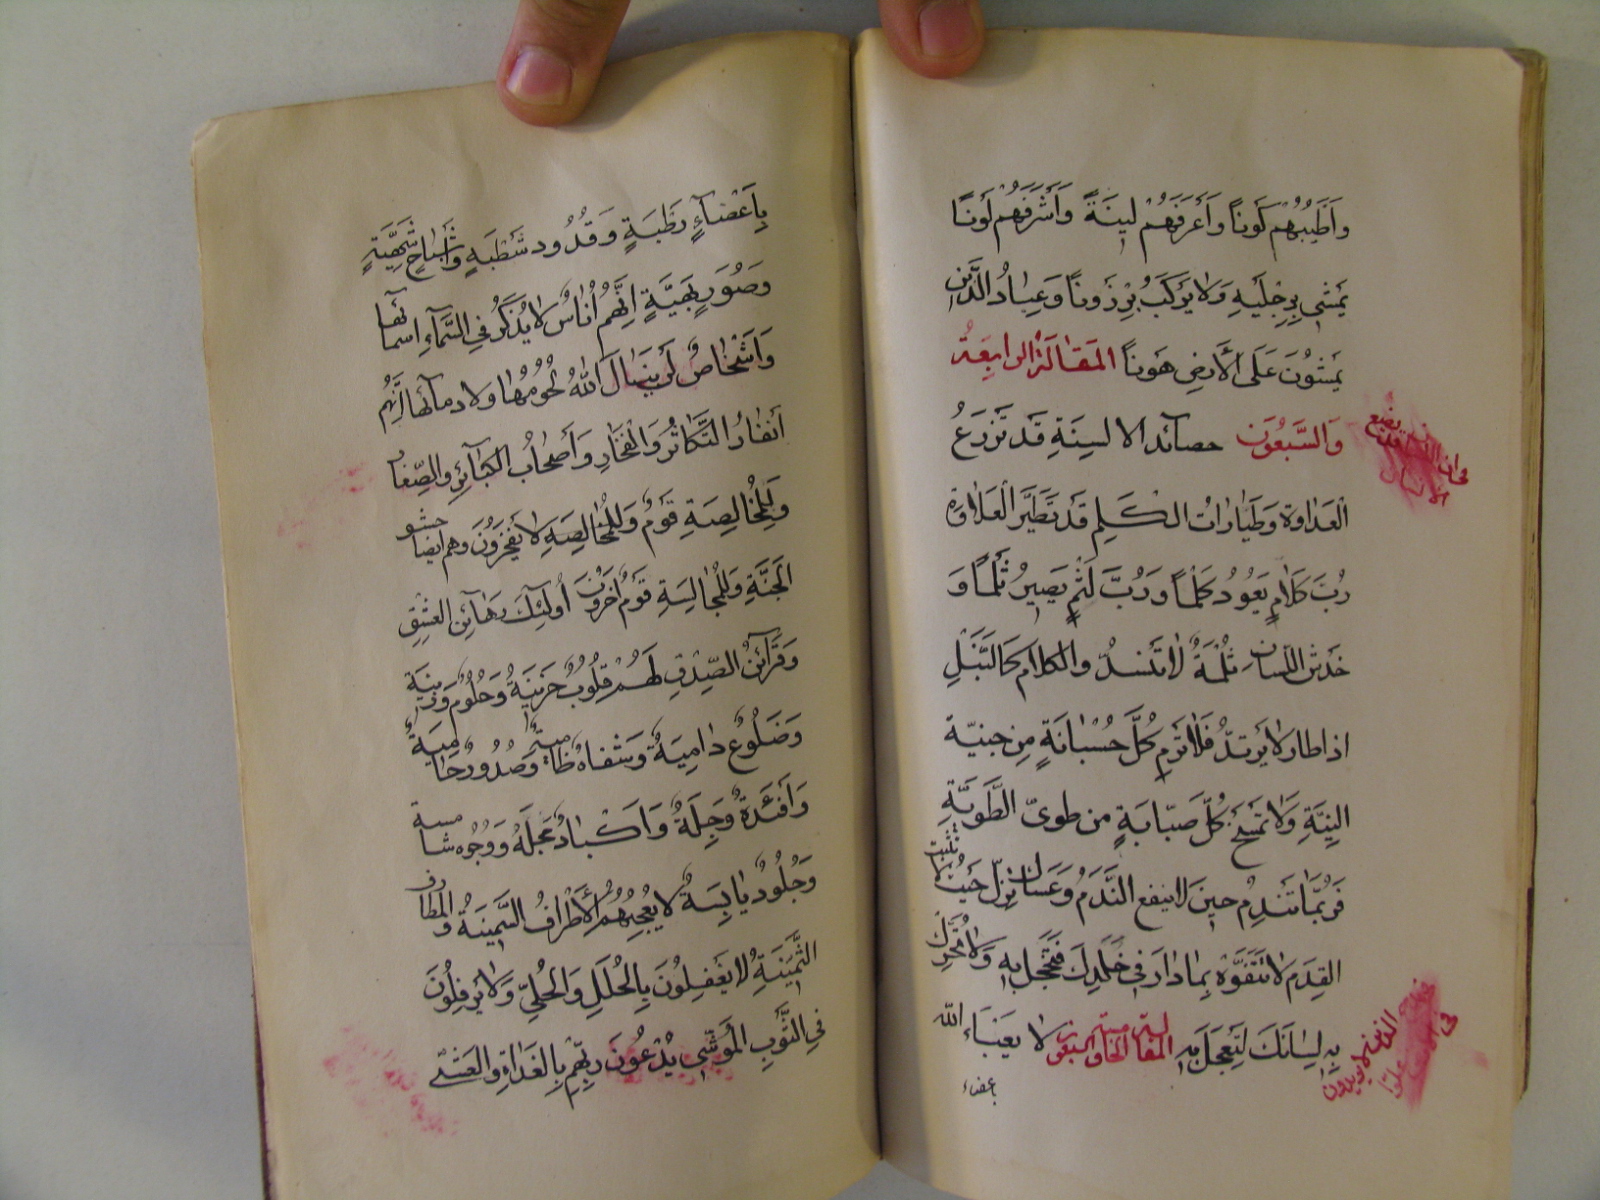 وَاَطْيَبُهُمْ كَوْنًا وَاَعْرَفَهُمْ لِينَةً وَاَشْرَفَهُمْ لَوْنًا
يَمْشِي بِرِجْلَيْهِ وَلَا يَرْكَبُ بِرْذَوْنًا وَعِبَادُ الَّذِينَ
يَمْشُونَ عَلَى الْأَرْضِ هَوْنًا المَقَالَةُ الرابِعَةُ
وَالسَّبْعُونَ حصآئد الالسِنَةِ قَدْ تَزْرَعُ
الْعَدَاوَةَ وَطَيَارَاتُ الكَلِمِ قَدْ تَطَيِّرُ الْعَلَاوَة
رُبَّ كَلَامٍ يَعُودُ كَلْمًا وَرُبَّ لَثْمٍ يَصِيرُ ثَلْمًا وَ
خَدْشُ اللّسان ثُلْمَةٌ لَا تَنْسَدُّ والكلام كَالنَّبْلِ
اذا طار لا يَرتدُّ فَلَا تَرْمِ كُلَّ حُسْبَانَةٍ مِن جنبيّة
النِيَّةِ وَلَا تَمْسَحْ كُلَّ صَبَابَةٍ من طوىّ الطَّوِيَّةِ
فَرُبَّمَا تَنْدَمُ حِينَ لا ينفع النَّدَمُ وَعَسَاكَ تَزِلُّ حَيْثُ لا تثبت
القِدَم لا تَتَفَوَّهْ بِمَا دَارَ فِي خَلَدِكَ فَتَجْجَلَ بِهِ وَلَا تُحَرِّكْ
بِهِ لِسَانَكَ لِتَعْجَلَ بِهِ المقالة الخامسة والسبعون لا يَعْبَاءُ الله
باعضاء
بِاَعْضَآءٍ رَطْبَةٍ وَقُدُودٍ شَطْبَةٍ وَأَشْبَاحٍ شَهِيَّةٍ
وَصُوَرٍ بَهِيَّةٍ اِنَّهُمْ أُنَاسٌ لَا يُذْكَرُ فِي السَّمَآءِ اسمآئُها
وَاَشْخَاصٌ لَنْ يَنَالَ اللهُ لُحُومُهَا ولا دمآئها اِنَّهُمْ
أَنْفَارُ التَّكَاثُرِ وَالْفَخَارِ وَأَصْحَابُ الكَبَآئِرِ وَالصِّغَارِ
وَلِلْمُخَالَصَةِ قَوْمٌ وَلِلْخَالِصَةِ لَا يَفْخَرُونَ وهم ايضا حشو
الجَنَّةِ وَلِلْمُجَالَسَةِ قَوْمٌ اٰخَرُونَ أُولٰئِكَ رَهَآئِنُ الْعِشْقِ
وَقَرَآئِنُ الصِّدْقِ لَهُمْ قُلُوبٌ حَزِينَةٌ وَحُلُومٌ رزينَةٌ
وَضُلُوعٌ دامِيَةٌ وَشفاهٌ ظامِيَةٌ وَصُدُورٌ حَامِيَةٌ
وَأَفْئِدَةٌ وَجِلَةٌ وَاَكْبَادٌ عَجِلَةٌ وَوُجُوه شامسة
وَجُلُودٌ يَابِسَةٌ لَا يُعْجِبُهُمُ الْأَطْرَافُ السَّمِينَةُ وَالمطارف
الثَّمِينَةِ لَا يَغْفِلُونَ بِالْحُلَلِ وَالحُلِيِّ وَلَا يَرْفُلُونَ
فِي الثَّوْبِ الْمَوْشِيِّ يَدْعُونَ رَبَّهُمْ بِالْغَدَاةِ وَالْعَشِيِّ